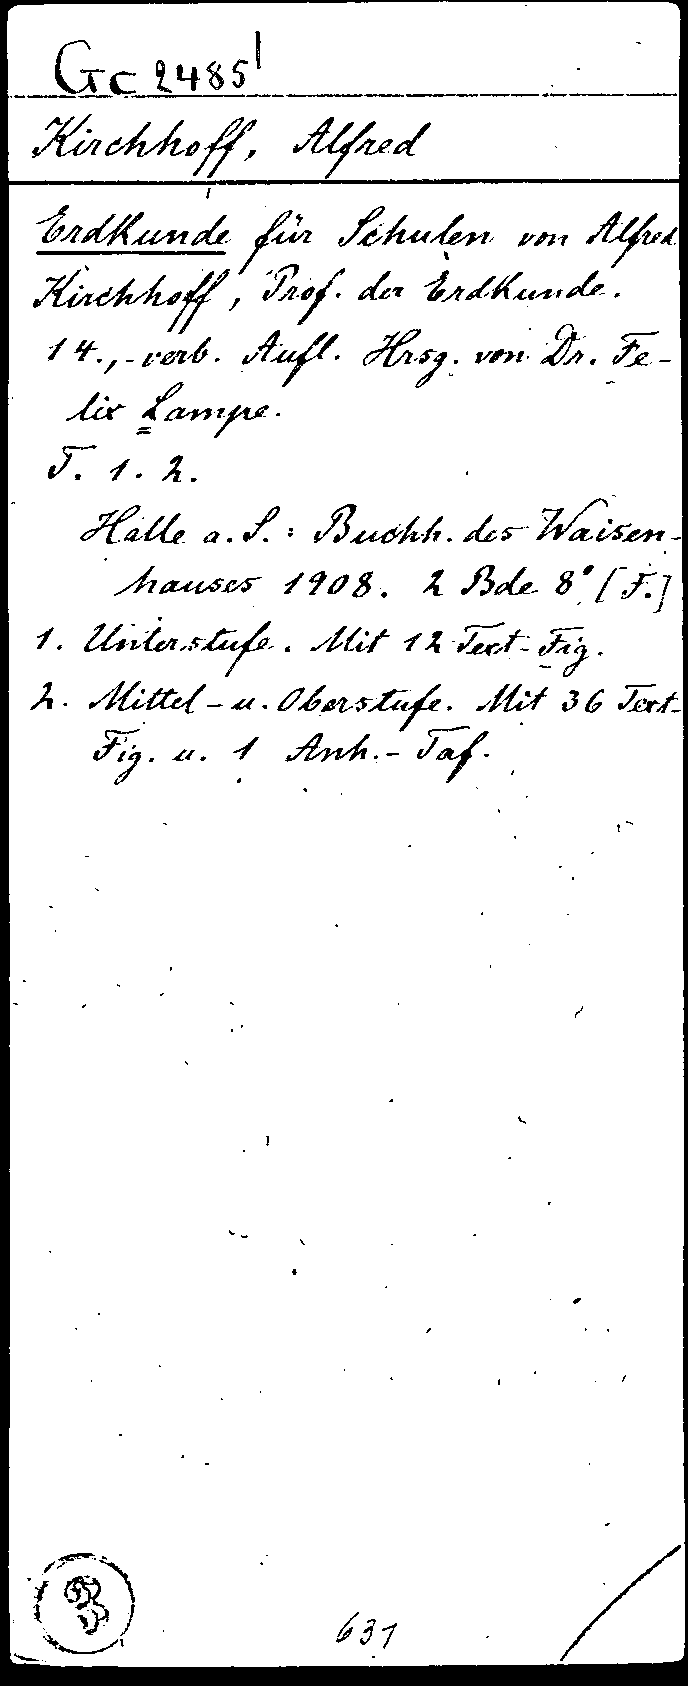 Gc 2485¹
Kirchhoff, Alfred
Erdkunde für Schulen von Alfred
Kirchhoff, Prof. der Erdkunde.
14., verb. Aufl. Hrsg. von Dr. Fe-
lix Lampe.
T. 1. 2.
Halle a. S.: Buchh. des Waisen-
hauses 1908. 2 Bde 8° [F.]
1. Unterstufe. Mit 12 Text-Fig.
2. Mittel- u. Oberstufe. Mit 36 Text-
Fig. u. 1 Anh.-Taf.
B
631